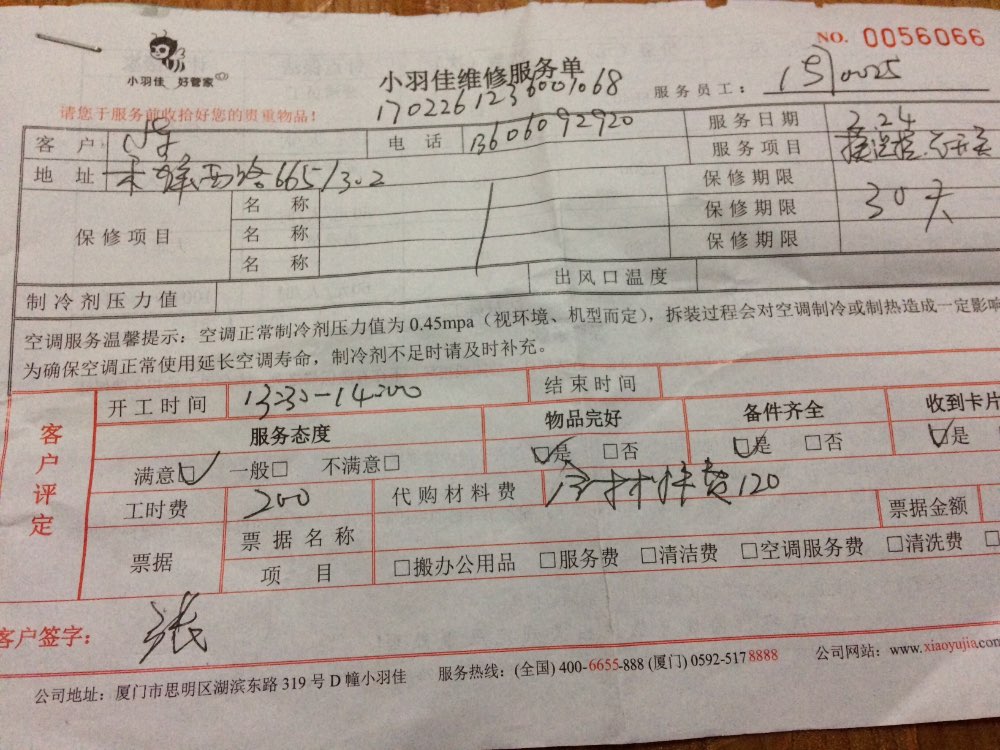 NO. 0056066
小羽佳 好管家
小羽佳维修服务单
1702261236001068
服务员工：
请您于服务前收拾好您的贵重物品！
客 户 电 话 13606092920 服务日期 2.24
服务项目
地 址 西路665/302 保修期限
保修项目 名 称 保修期限 30天
名 称 保修期限
名 称
制冷剂压力值 出风口温度
空调服务温馨提示：空调正常制冷剂压力值为0.45mpa（视环境、机型而定），拆装过程会对空调制冷或制热造成一定影响
为确保空调正常使用延长空调寿命，制冷剂不足时请及时补充。
客户评定
开工时间 13:30-14:00 结束时间
服务态度 物品完好 备件齐全 收到卡片
满意☑ 一般□ 不满意□ ☑是 □否 ☑是 □否 ☑是
工时费 200 代购材料费 含材料费120
票据 票据名称 票据金额
项 目 □搬办公用品 □服务费 □清洁费 □空调服务费 □清洗费 □
客户签字： 张
公司地址：厦门市思明区湖滨东路 319 号 D 幢小羽佳 服务热线：(全国) 400-6655-888 (厦门) 0592-5178888 公司网站：www.xiaoyujia.com